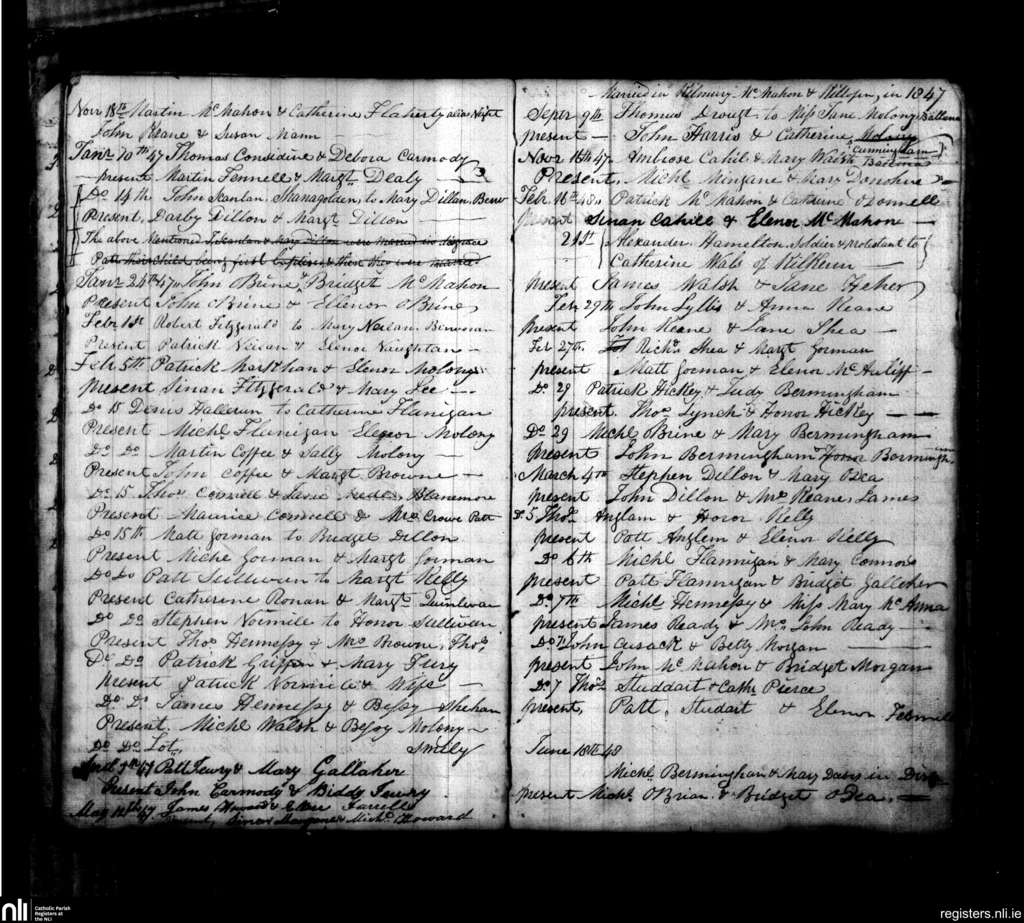 Novr 18th Martin Mc Mahon & Catherine Flaherty alias Night
John Keane & Susan Mann
Janr 10th 47 Thomas Considine & Debora Carmody
present Martin Fennell & Margt Dealy
Do 14th John Scanlan, Shanagolden, to Mary Dillon,
Present, Darby Dillon & Margt Dillon
The above mentioned J Scanlan & Mary Dillon were married in
their child being first & then they were married
Janr 24th 47 John Brine & Bridget Mc Mahon
Present John O Brine & Ellenor O Brine
Febr 1st Robert Fitzgerald to Mary
Present Patrick & Elenor Naughtan
Feb 5th Patrick & Elenor Molony
present Sinan Fitzgerald & Mary Lee
Do 15 Denis Halleran to Catherine Flanigan
Present Michl Flanigan Elenor Molony
Do Do Martin Coffee & Sally Molony
Present John Coffee & Margt Browne
Do 15 Thos Connell &
Present Maurice Connell & Mrs Crowe Patt
Do 15th Matt Gorman to Bridget Dillon
Present Michl Gorman & Margt Gorman
Do Do Patt Sullivan to Margt Kelly
Present Catherine Ronan & Margt Quinlivan
Do Do Stephen Normile to Honor Sullivan
Present Thos Hennessy & Mrs Browne, Thos
Do Do Patrick Griffin & Mary Fury
Present Patrick Normile & Wife
Do Do James Hennessy & Bessy Shehan
Present Michl Walsh & Bessy Molony
Do Do Smilly
7th 47 Patt Fewry & Mary Gallaher
Present John Carmody & Biddy Fewry
May 47 James Howard & Ellen Farrell
Michl Howard
Married in Kilmury Mc Mahon & in 1847
Septr 9th Thomas Drought to Miss Jane Molony
present John Harris & Catherine Molony
Cunningham
Novr 16th 47 Ambrose Cahil & Mary Walsh
Present, Michl Mingane & Mary Donohue
Febr 16th 48 Patrick Mc Mahon & Catherine O Donnell
present Sinan Cahill & Elenor Mc Mahon
21st Alexander Hamelton, Soldier & protestant to
Catherine Wals of Kilkerin
present James Walsh & Jane Heher
Feb 29th John Lyllis & Anna Keane
present John Keane & Jane Shea
Feb 27th Richd Shea & Margt Gorman
present Matt Gorman & Elenor Mc Auliff
Do 29 Patrick Hickey & Judy Bermingham
present Thos Lynch & Honor Hickey
Do 29 Michl Brine & Mary Bermingham
Present John Bermingham & Honor Bermingham
March 4th Stephen Dillon & Mary Dea
present John Dillon & Mrs Keane, James
Do 5 Thos Anglam & Honor Kelly
present Patt Anglem & Elenor Kelly
Do 6th Michl Flannigan & Mary Connors
present Patt Flannigan & Bridget Galleher
Do 7th Michl Hennessy & Miss Mary Mc
present James Ready & Mrs John Ready
Do 7 John Cusack & Betty Morgan
present John Mc Mahon & Bridget Morgan
Do 7 Thos Studdart & Cathe Pierce
present, Patt. Studart & Elenor
June 18th 48
Michl Bermingham & Mary Davis in
present Michl O'Brian & Bridget O Dea
nli Catholic Parish Registers at the NLI
registers.nli.ie